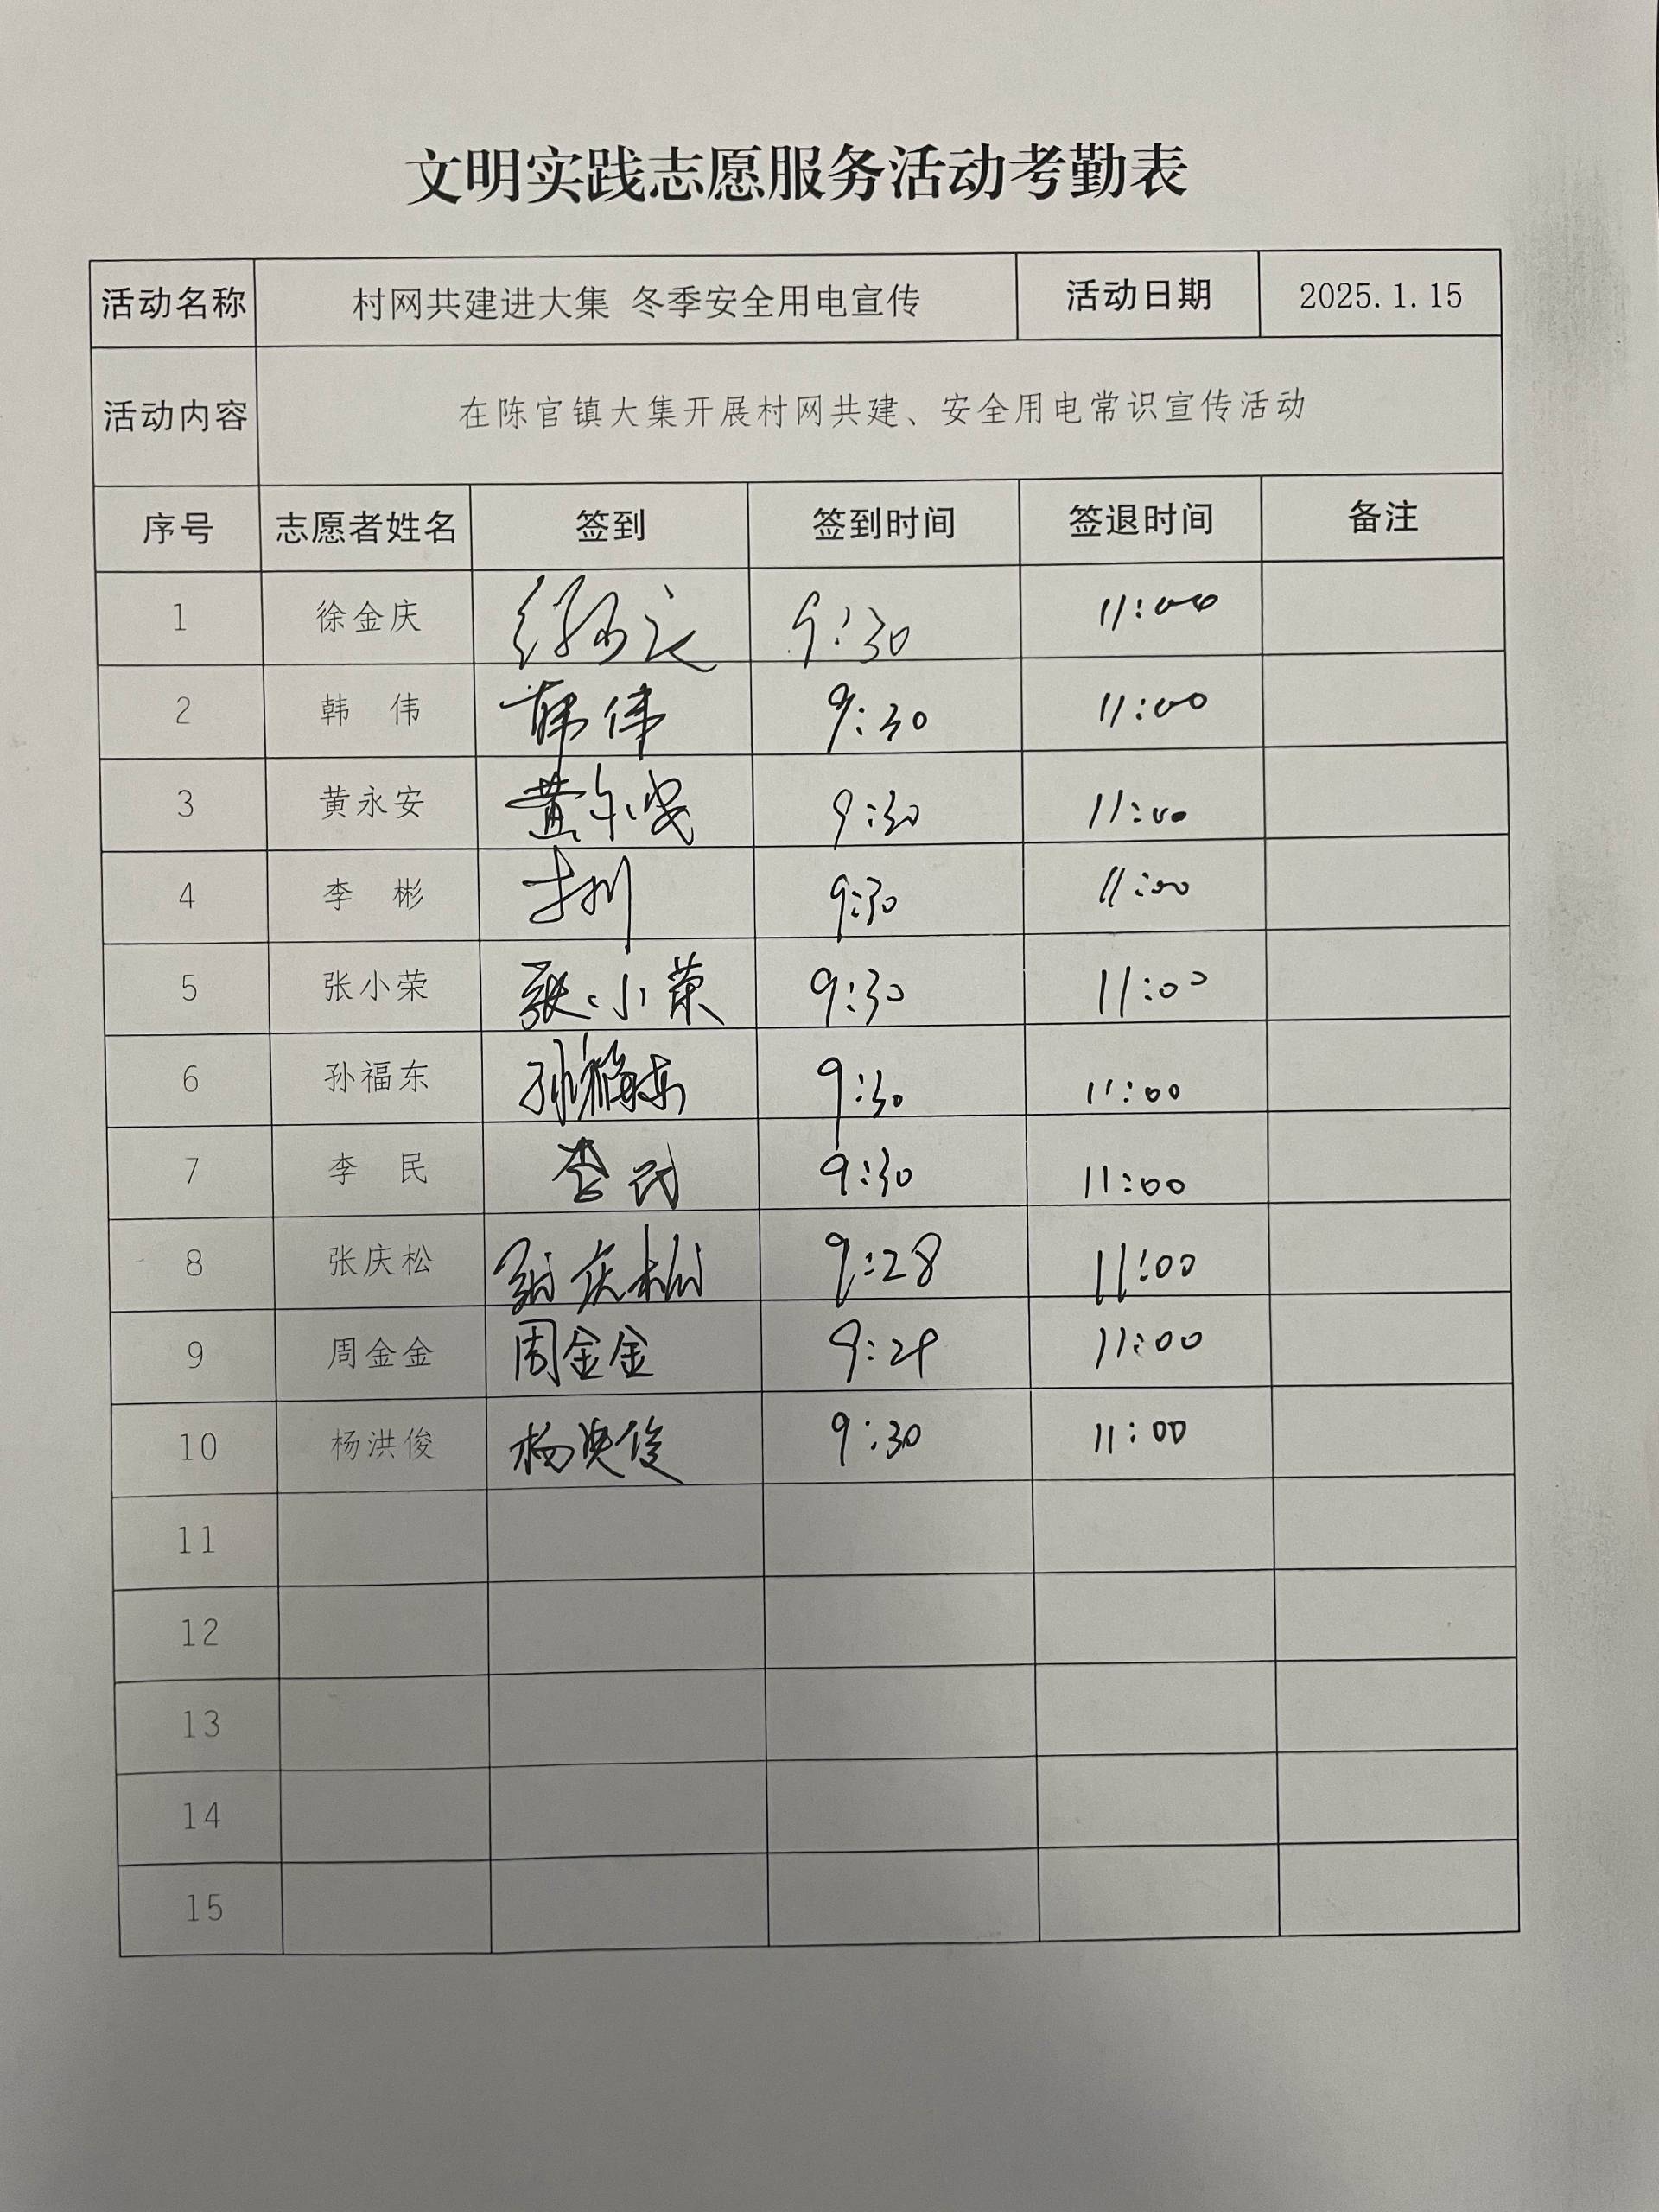 文明实践志愿服务活动考勤表
活动名称 村网共建进大集 冬季安全用电宣传 活动日期 2025.1.15
活动内容 在陈官镇大集开展村网共建、安全用电常识宣传活动
序号 志愿者姓名 签到 签到时间 签退时间 备注
1 徐金庆 9:30 11:00
2 韩 伟 韩伟 9:30 11:00
3 黄永安 黄永安 9:30 11:00
4 李 彬 9:30 11:00
5 张小荣 张小荣 9:30 11:00
6 孙福东 孙福东 9:30 11:00
7 李 民 李民 9:30 11:00
8 张庆松 张庆松 9:28 11:00
9 周金金 周金金 9:29 11:00
10 杨洪俊 杨洪俊 9:30 11:00
11
12
13
14
15